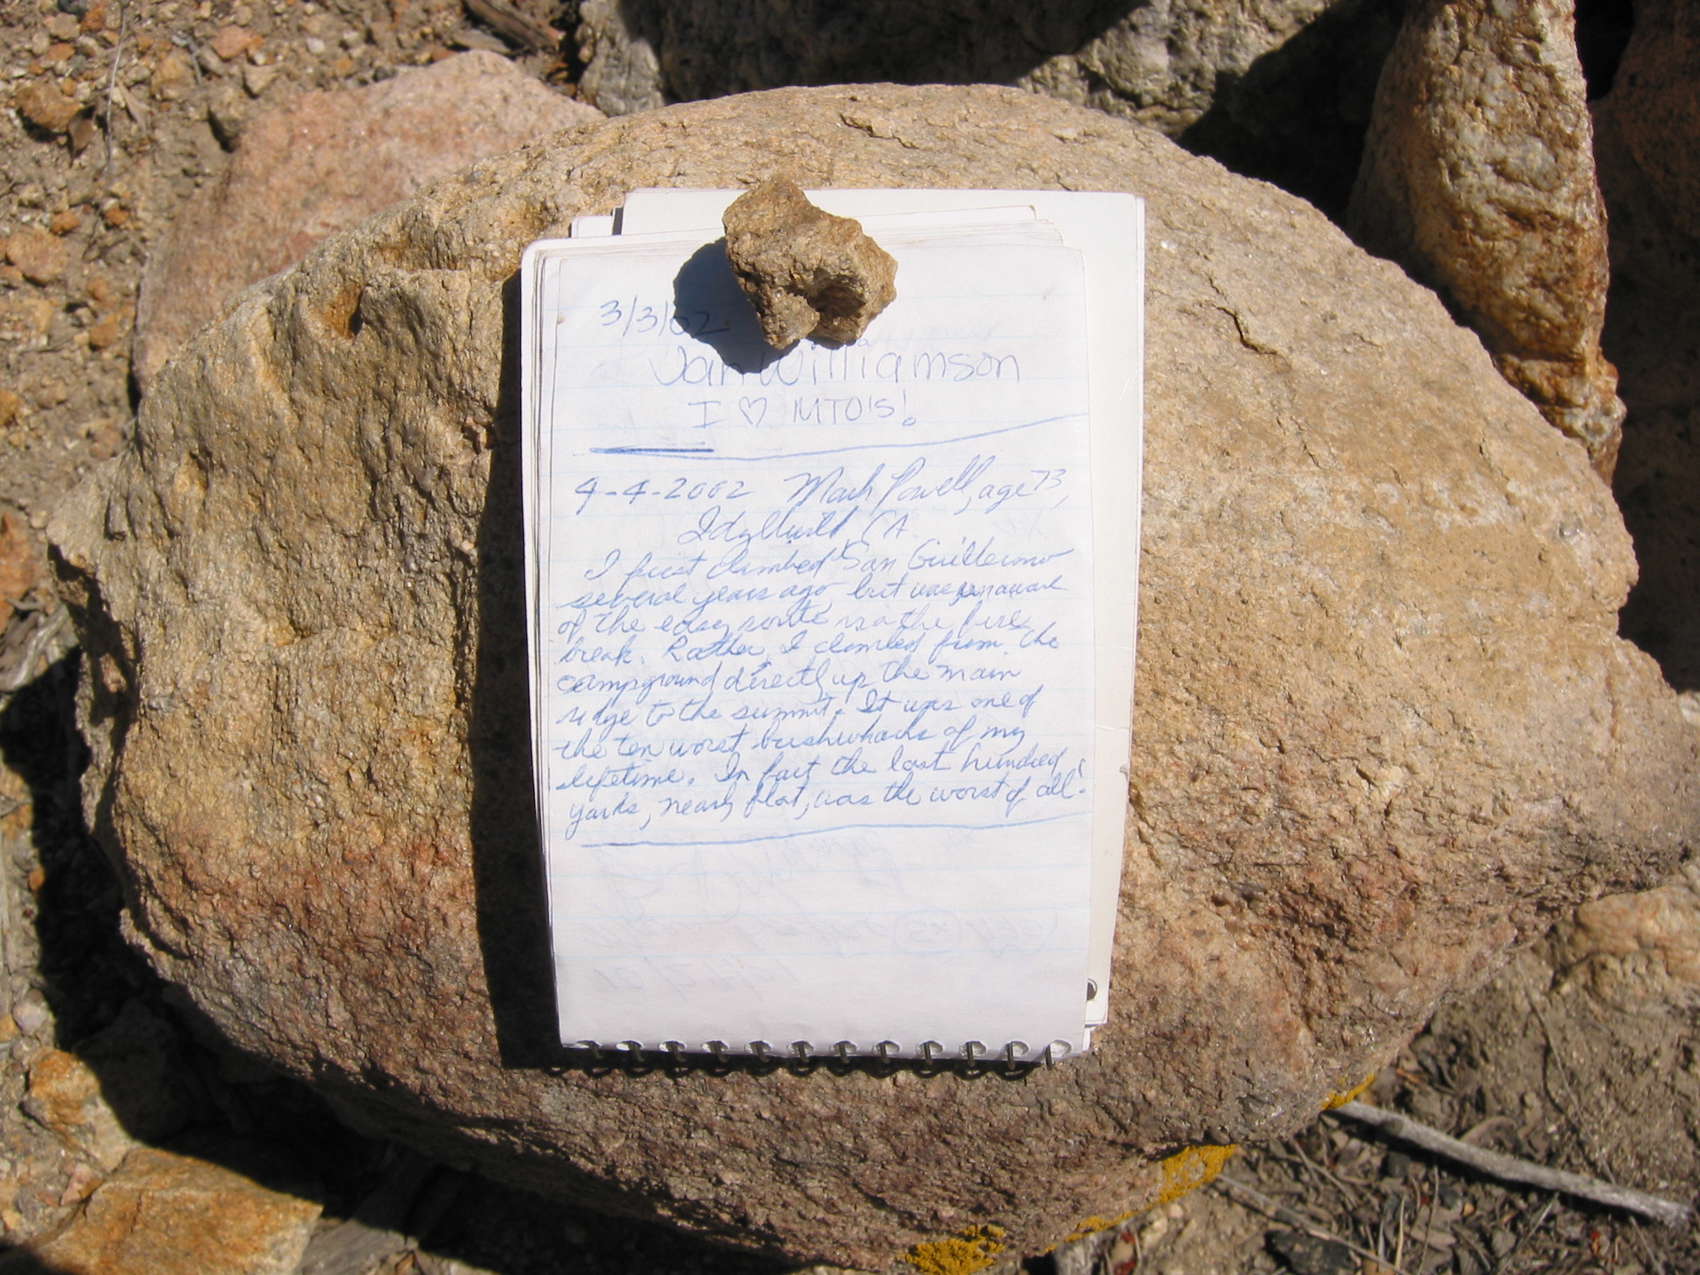 3/3/02
Jan Williamson
I ♡ MTO'S!
4-4-2002 Mark Powell, age 73,
Idyllwild, CA.
I first climbed San Guillermo
several years ago but was unaware
of the easy route via the fire
break. Rather, I climbed from the
campground directly up the main
ridge to the summit. It was one of
the ten worst bushwhacks of my
lifetime. In fact the last hundred
yards, nearly flat, was the worst of all!